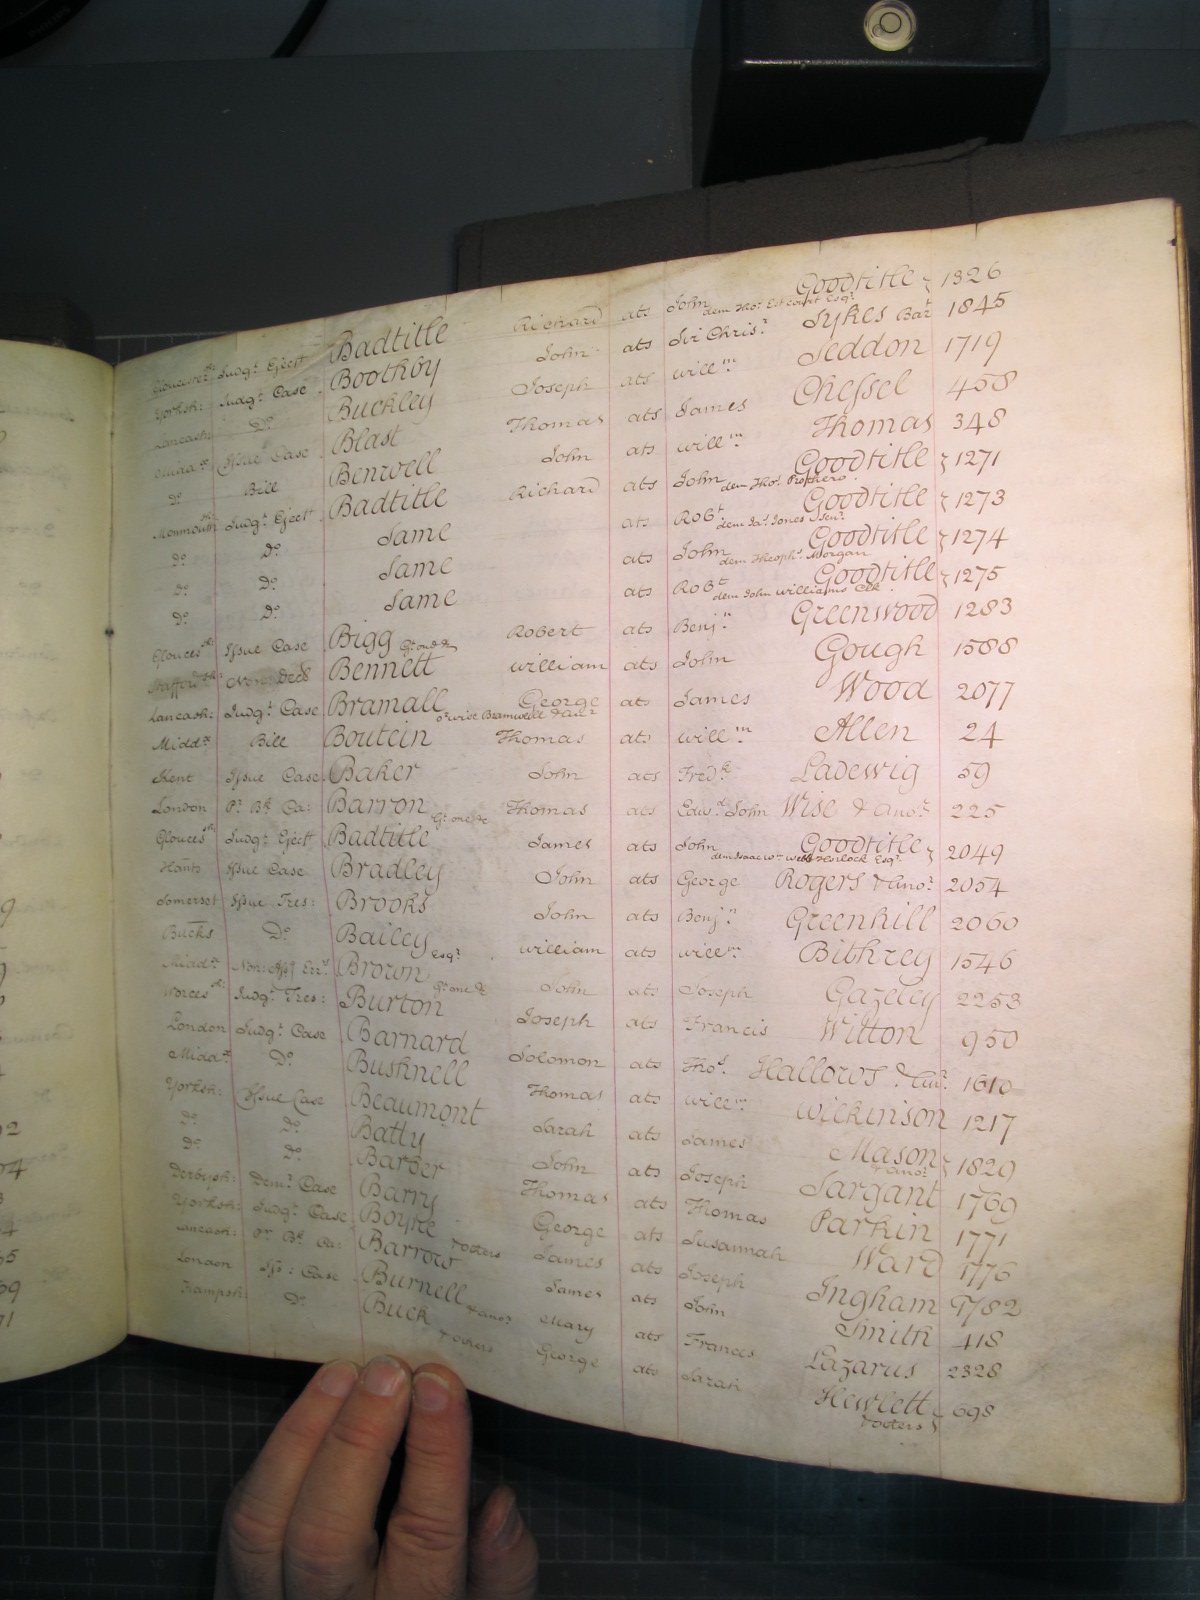 Glouces:rsh Judg:t Eject:t Badtitle Richard ats John Goodtitle } 1326
dem Tho:s Estcourt Esq:r
Yorksh: Judg:t Case Boothby John ats Sir Chris:r Sykes Bar:t 1845
Lancash: D:o Buckley Joseph ats Will:m Seddon 1719
Midd:x Issue Case Blast Thomas ats James Chessel 458
D:o Bill Benwell John ats Will:m Thomas 348
Monmouth:sh Judg:t Eject:t Badtitle Richard ats John Goodtitle } 1271
dem Tho:s Prothero
D:o D:o Same ats Rob:t Goodtitle } 1273
dem Ja:s Jones Sen:r
D:o D:o Same ats John Goodtitle } 1274
dem Theoph:s Morgan
D:o D:o Same ats Rob:t Goodtitle } 1275
dem John Williams Clk
Glouces:sh Issue Case Bigg G:t one &c Robert ats Benj:n Greenwood 1283
Stafford:sh Bennett William ats John Gough 1588
Lancash: Judg:t Case Bramall George ats James Wood 2077
o:rwise Bramwell & an:r
Midd:x Bill Boutein Thomas ats Will:m Allen 24
Kent Issue Case Baker John ats Fred:k Ladewig 59
London P:r B:k Ca: Barron G:t one &c Thomas ats Edw:d John Wise & ano:r 225
Glouces:sh Judg:t Eject:t Badtitle James ats John Goodtitle } 2049
dem Isaac W:m Webb Horlock Esq:r
Hants Issue Case Bradley John ats George Rogers & ano:r 2054
Somerset Issue Tres: Brooks John ats Benj:n Greenhill 2060
Bucks D:o Bailey Esq:r William ats Will:m Bithrey 1546
Midd:x Non: Ass Err:r Brown G:t one &c John ats Joseph Gazeley 2253
Worces:sh Judg:t Tres: Burton Joseph ats Francis Witton 950
London Judg:t Case Barnard Solomon ats Tho:s Hallows & an:r 1610
Midd:x D:o Bushnell Thomas ats Will:m Wilkinson 1217
Yorksh: Issue Case Beaumont Sarah ats James Mason } 1820
& ano:r
D:o D:o Batty John ats Joseph Sargant 1769
D:o D:o Barber Thomas ats Thomas Parkin 1771
Derbysh: Dem:r Case Barry George ats Susannah Ward 1776
Yorksh: Judg:t Case Boyne & others James ats Joseph Ingham 1782
Lancash: P:r B:k Ca: Barrow James ats John Smith 418
London Iss: Case Burnell & ano:r Mary ats Frances Lazarus 2328
Hampsh: D:o Buck & others George ats Sarah Hewlett } 698
& others